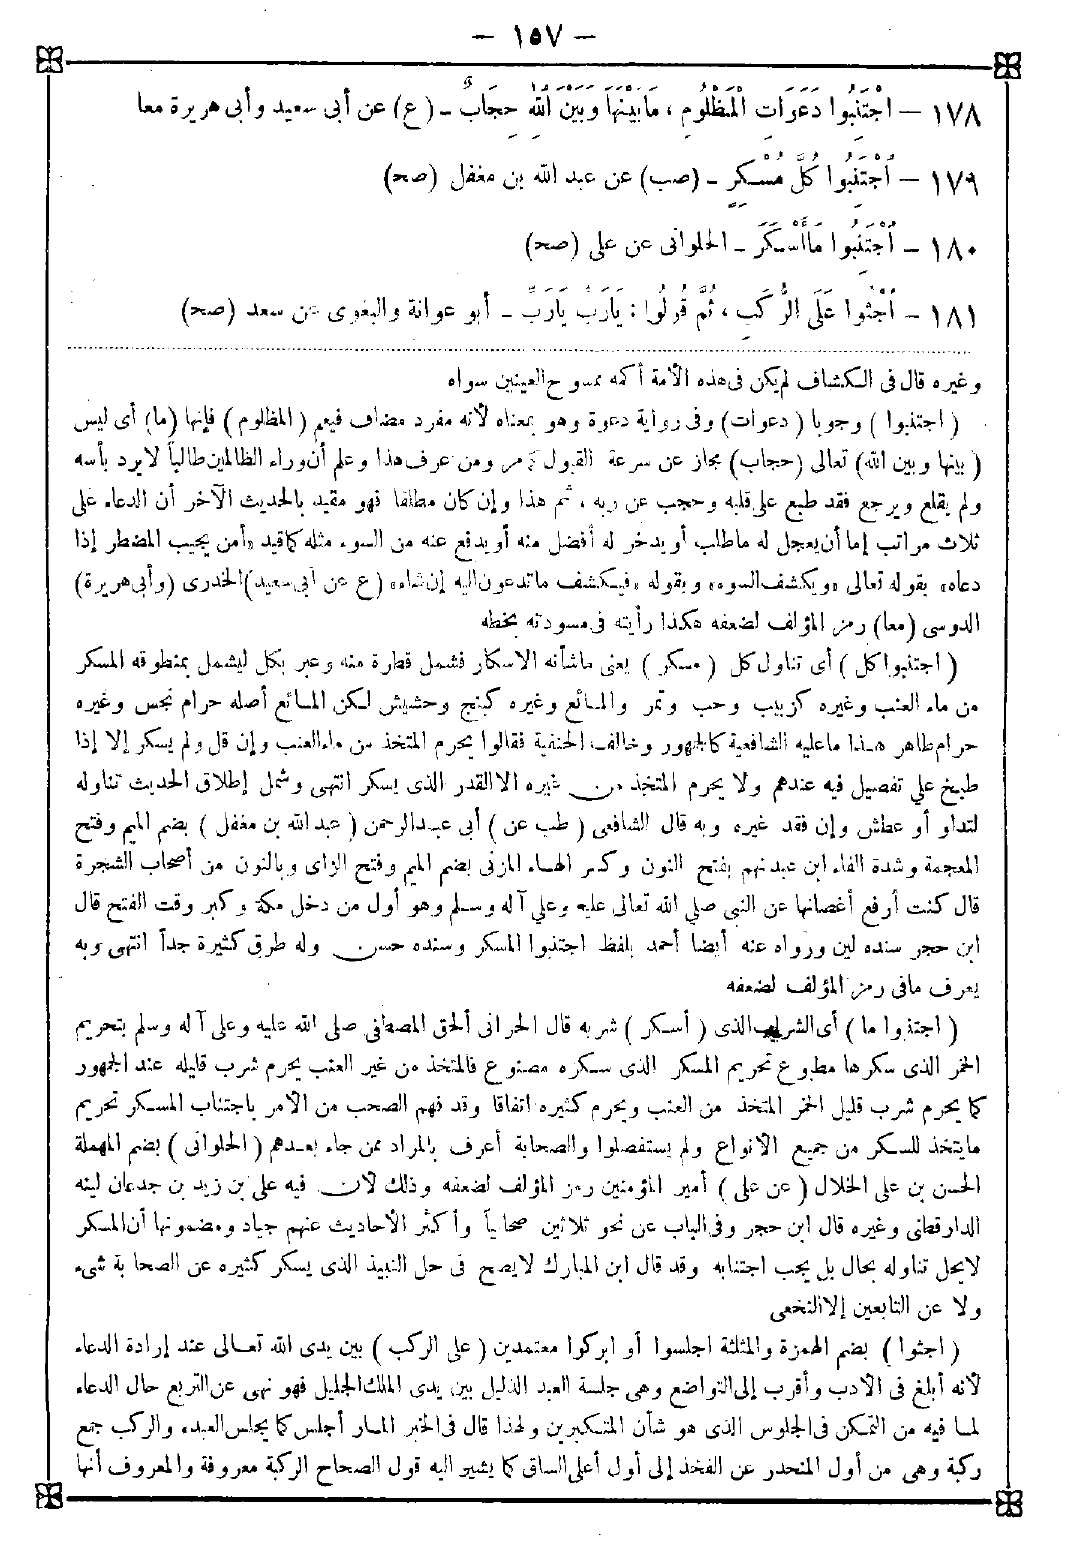 – ١٥٧ –
١٧٨ – اجْتَنِبُوا دَعَوَاتِ الْمَظْلُومِ ، مَا بَيْنَهَا وَبَيْنَ اللهِ حِجَابٌ – (ع) عن أبى سعيد وأبى هريرة معا
١٧٩ – اُجْتَنِبُوا كُلَّ مُسْكِرٍ – (صب) عن عبد الله بن مغفل (صحـ)
١٨٠ – اُجْتَنِبُوا مَا أَسْكَرَ – الحلوانى عن على (صحـ)
١٨١ – اُجْثُوا عَلَى الرُّكَبِ ، ثُمَّ قُولُوا : يَارَبُّ يَارَبِّ – أبو عوانة والبغوى عن سعد (صحـ)
وغيره قال فى الكشاف لم يكن فى هذه الأمة أكمه ممسوح العينين سواه
( اجتنبوا ) وجوبا ( دعوات ) وفى رواية دعوة وهو بمعناه لأنه مفرد مضاف فيعم ( المظلوم ) فإنها (ما) أى ليس
( بينها وبين الله) تعالى (حجاب) مجاز عن سرعة القبول كمر ومن عرف هذا وعلم أن وراء الظالمين طالباً لايرد بأسه
ولم يقلع ويرجع فقد طبع على قلبه وحجب عن ربه ، ثم هذا وإن كان مطلقا فهو مقيد بالحديث الآخر أن الدعاء على
ثلاث مراتب إما أن يعجل له ماطلب أو يدخر له أفضل منه أو يدفع عنه من السوء مثله كما قيد «أمن يجيب المضطر إذا
دعاه» بقوله تعالى «ويكشف السوء» وبقوله «فيكشف ماتدعون اليه إن شاء» (ع عن أبى سعيد) الخدرى (وأبى هريرة)
الدوسى (معا) رمز المؤلف لضعفه هكذا رأيته فى مسودته بخطه
( اجتنبوا كل ) أى تناول كل ( مسكر ) يعنى ماشأنه الاسكار فشمل قطرة منه وعبر بكل ليشمل بمنطوقه المسكر
من ماء العنب وغيره كزبيب وحب وتمر والمائع وغيره كبنج وحشيش لكن المائع أصله حرام نجس وغيره
حرام طاهر هذا ماعليه الشافعية كالجمهور وخالف الحنفية فقالوا يحرم المتخذ من ماء العنب وإن قل ولم يسكر إلا إذا
طبخ على تفصيل فيه عندهم ولا يحرم المتخذ من غيره الا القدر الذى يسكر انتهى وشمل إطلاق الحديث تناوله
لتداو أو عطش وإن فقد غيره وبه قال الشافعى ( طب عن ) أبى عبد الرحمن ( عبد الله بن مغفل ) بضم الميم وفتح
المعجمة وشدة الفاء ابن عبد نهم بفتح النون وكسر الهاء المزنى بضم الميم وفتح الزاى وبالنون من أصحاب الشجرة
قال كنت أرفع أغصانها عن النبى صلى الله تعالى عليه وعلى آله وسلم وهو أول من دخل مكة وكبر وقت الفتح قال
ابن حجر سنده لين ورواه عنه أيضا أحمد بلفظ اجتنبوا المسكر وسنده حسن وله طرق كثيرة جداً انتهى وبه
يعرف مافى رمز المؤلف لضعفه
( اجتنبوا ما ) أى الشراب الذى ( أسكر ) شربه قال الحرانى ألحق المصطفى صلى الله عليه وعلى آله وسلم بتحريم
الخمر الذى سكرها مطبوع تحريم المسكر الذى سكره مصنوع فالمتخذ من غير العنب يحرم شرب قليله عند الجمهور
كما يحرم شرب قليل الخمر المتخذ من العنب ويحرم كثيره اتفاقا وقد فهم الصحب من الأمر باجتناب المسكر تحريم
مايتخذ للسكر من جميع الأنواع ولم يستفصلوا والصحابة أعرف بالمراد ممن جاء بعدهم ( الحلوانى ) بضم المهملة
الحسن بن على الخلال ( عن على ) أمير المؤمنين رمز المؤلف لضعفه وذلك لأن فيه على بن زيد بن جدعان لينه
الدارقطنى وغيره قال ابن حجر وفى الباب عن نحو ثلاثين صحابياً وأكثر الأحاديث عنهم جياد ومضمونها أن المسكر
لايحل تناوله بحال بل يجب اجتنابه وقد قال ابن المبارك لايصح فى حل النبيذ الذى يسكر كثيره عن الصحابة شىء
ولا عن التابعين إلا النخعى
( اجثوا ) بضم الهمزة والمثلثة اجلسوا أو ابركوا معتمدين ( على الركب ) بين يدى الله تعالى عند إرادة الدعاء
لأنه أبلغ فى الأدب وأقرب إلى التواضع وهى جلسة العبد الذليل بين يدى الملك الجليل فهو نهى عن التربع حال الدعاء
لما فيه من التمكن فى الجلوس الذى هو شأن المتكبرين ولهذا قال فى الخبر المار أجلس كما يجلس العبد، والركب جمع
ركبة وهى من أول المنحدر عن الفخذ إلى أول أعلى الساق كما يشير اليه قول الصحاح الركبة معروفة والمعروف أنها